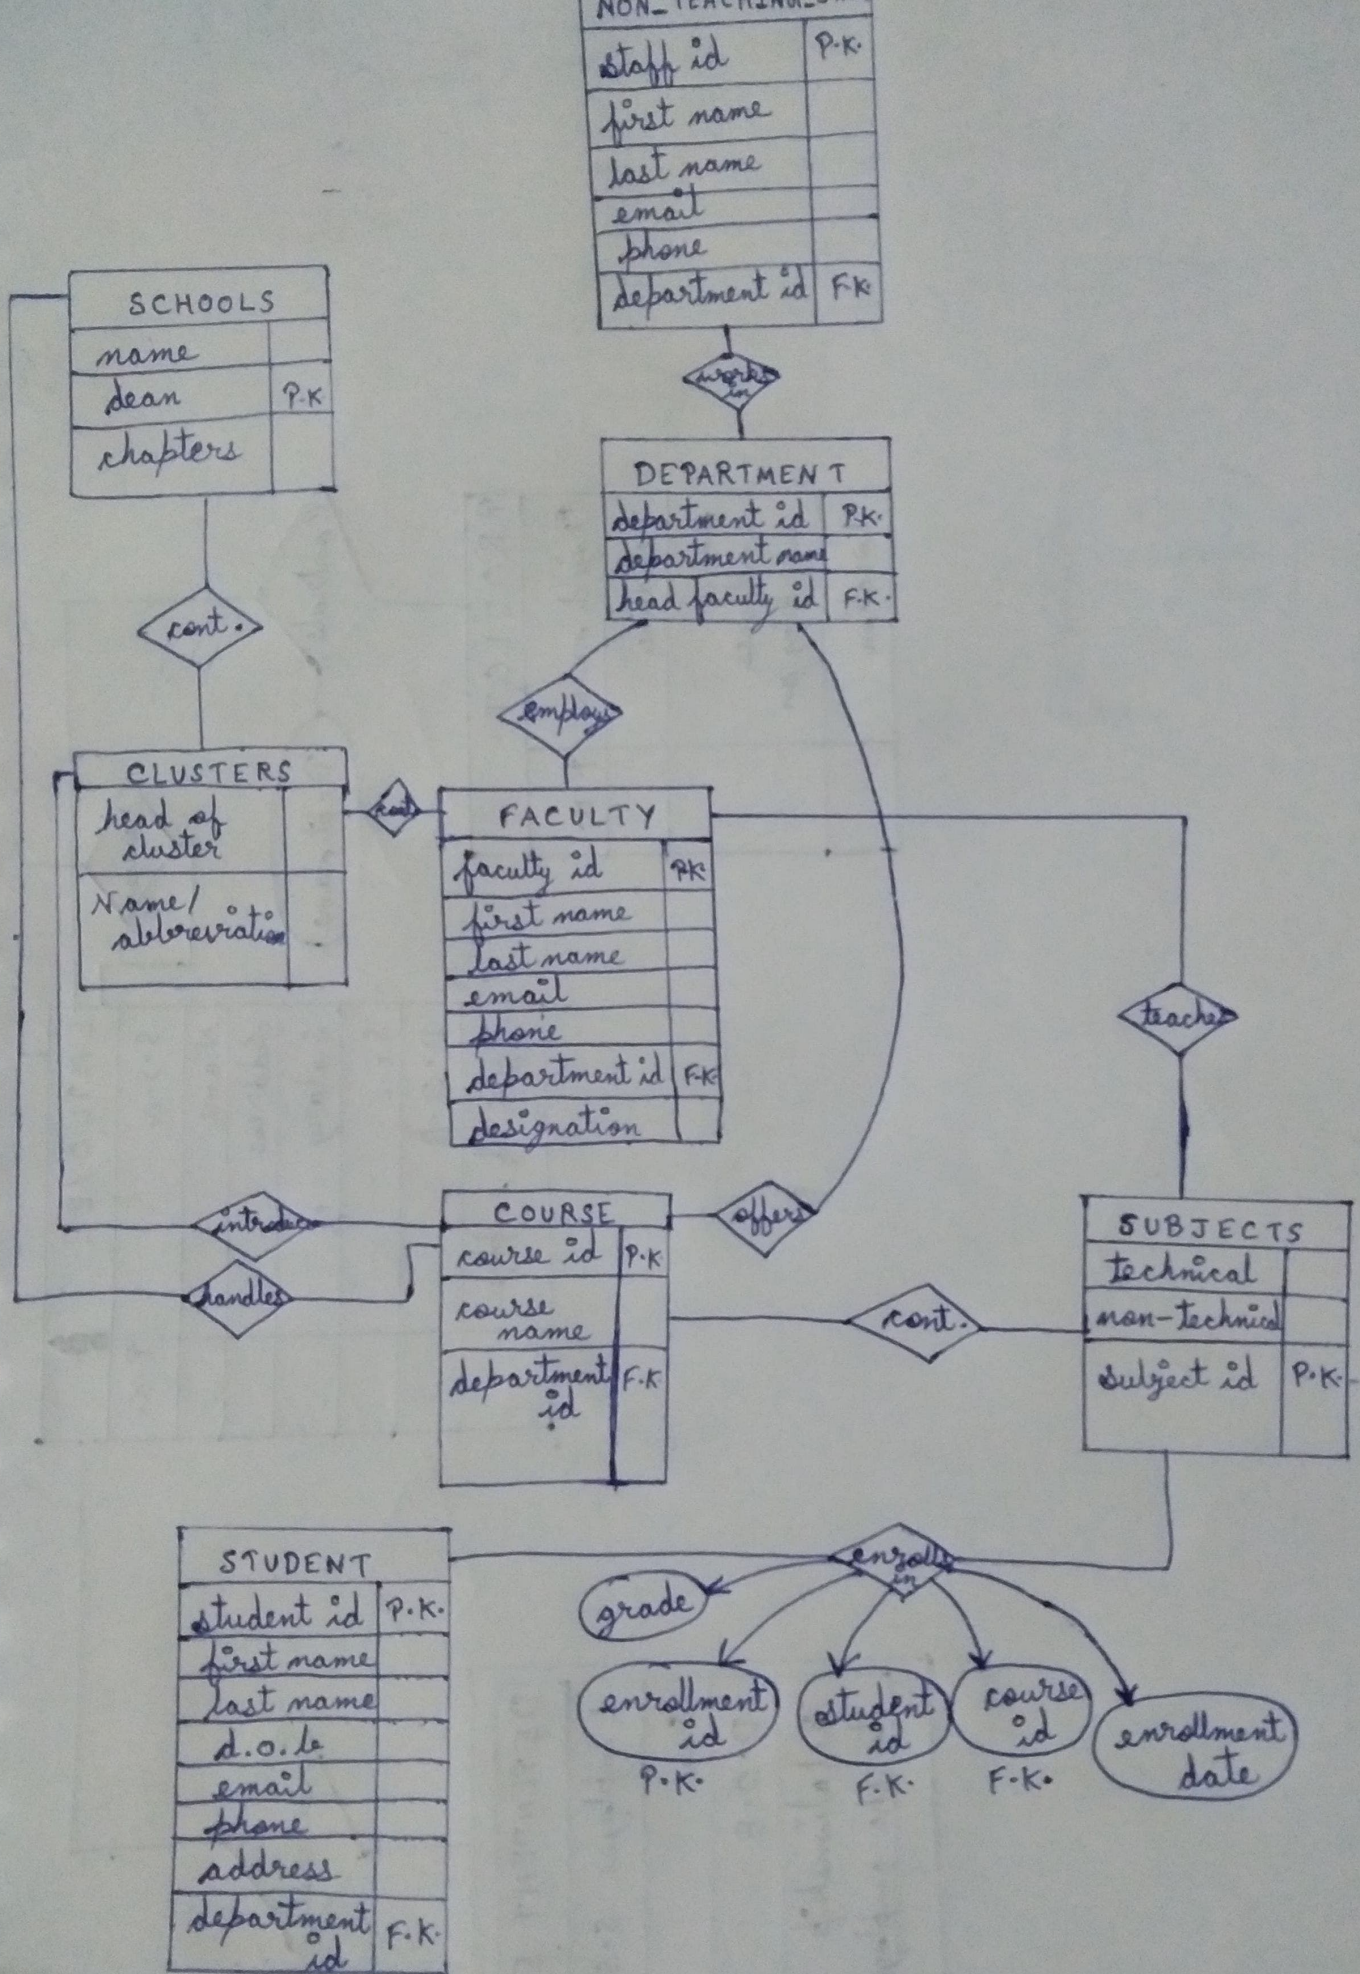 NON_TEACHING_
staff id P.K.
first name
last name
email
phone
department id F.K.
works
in
SCHOOLS
name
dean P.K
chapters
cont.
DEPARTMENT
department id P.K.
department name
head faculty id F.K.
employs
CLUSTERS
head of
cluster
Name/
abbreviation
cont
FACULTY
faculty id P.K.
first name
last name
email
phone
department id F.K.
designation
teaches
introduces
handles
COURSE
course id P.K
course
name
department
id F.K
offers
cont.
SUBJECTS
technical
non-technical
subject id P.K.
STUDENT
student id P.K.
first name
last name
d.o.b
email
phone
address
department
id F.K.
enrolls
in
grade
enrollment
id
P.K.
student
id
F.K.
course
id
F.K.
enrollment
date